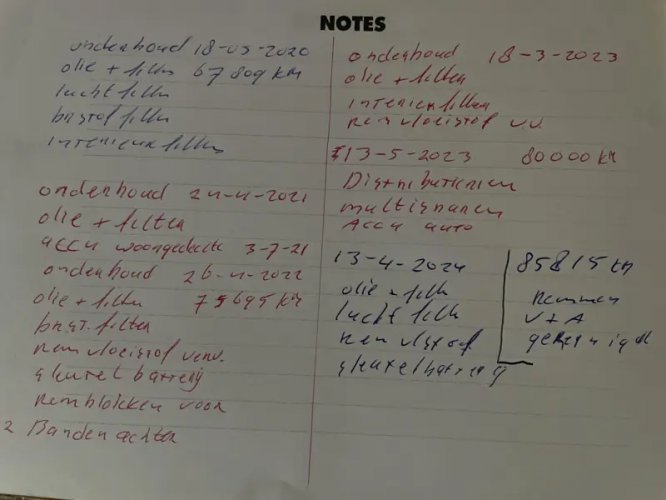 NOTES
onderhoud 18-03-2020
olie + filter 67809 km
luchtfilter
brstof filter
interieurfilter
onderhoud 24-4-2021
olie + filter
accu woongedeelte 3-7-21
onderhoud 26-4-2022
olie + filter 75695 km
brst. filter
remvloeistof verv.
sleutel batterij
Remblokken voor
2 Banden achter
onderhoud 18-3-2023
olie + filter
interieurfilter
remvloeistof v.v.
13-5-2023 80000 km
Distributieriem
multisnaren
Accu auto
13-4-2024
olie + filter
lucht filter
rem vlstof
sleutelbatterij
85815 km
Remmen
V+A
gereinigd